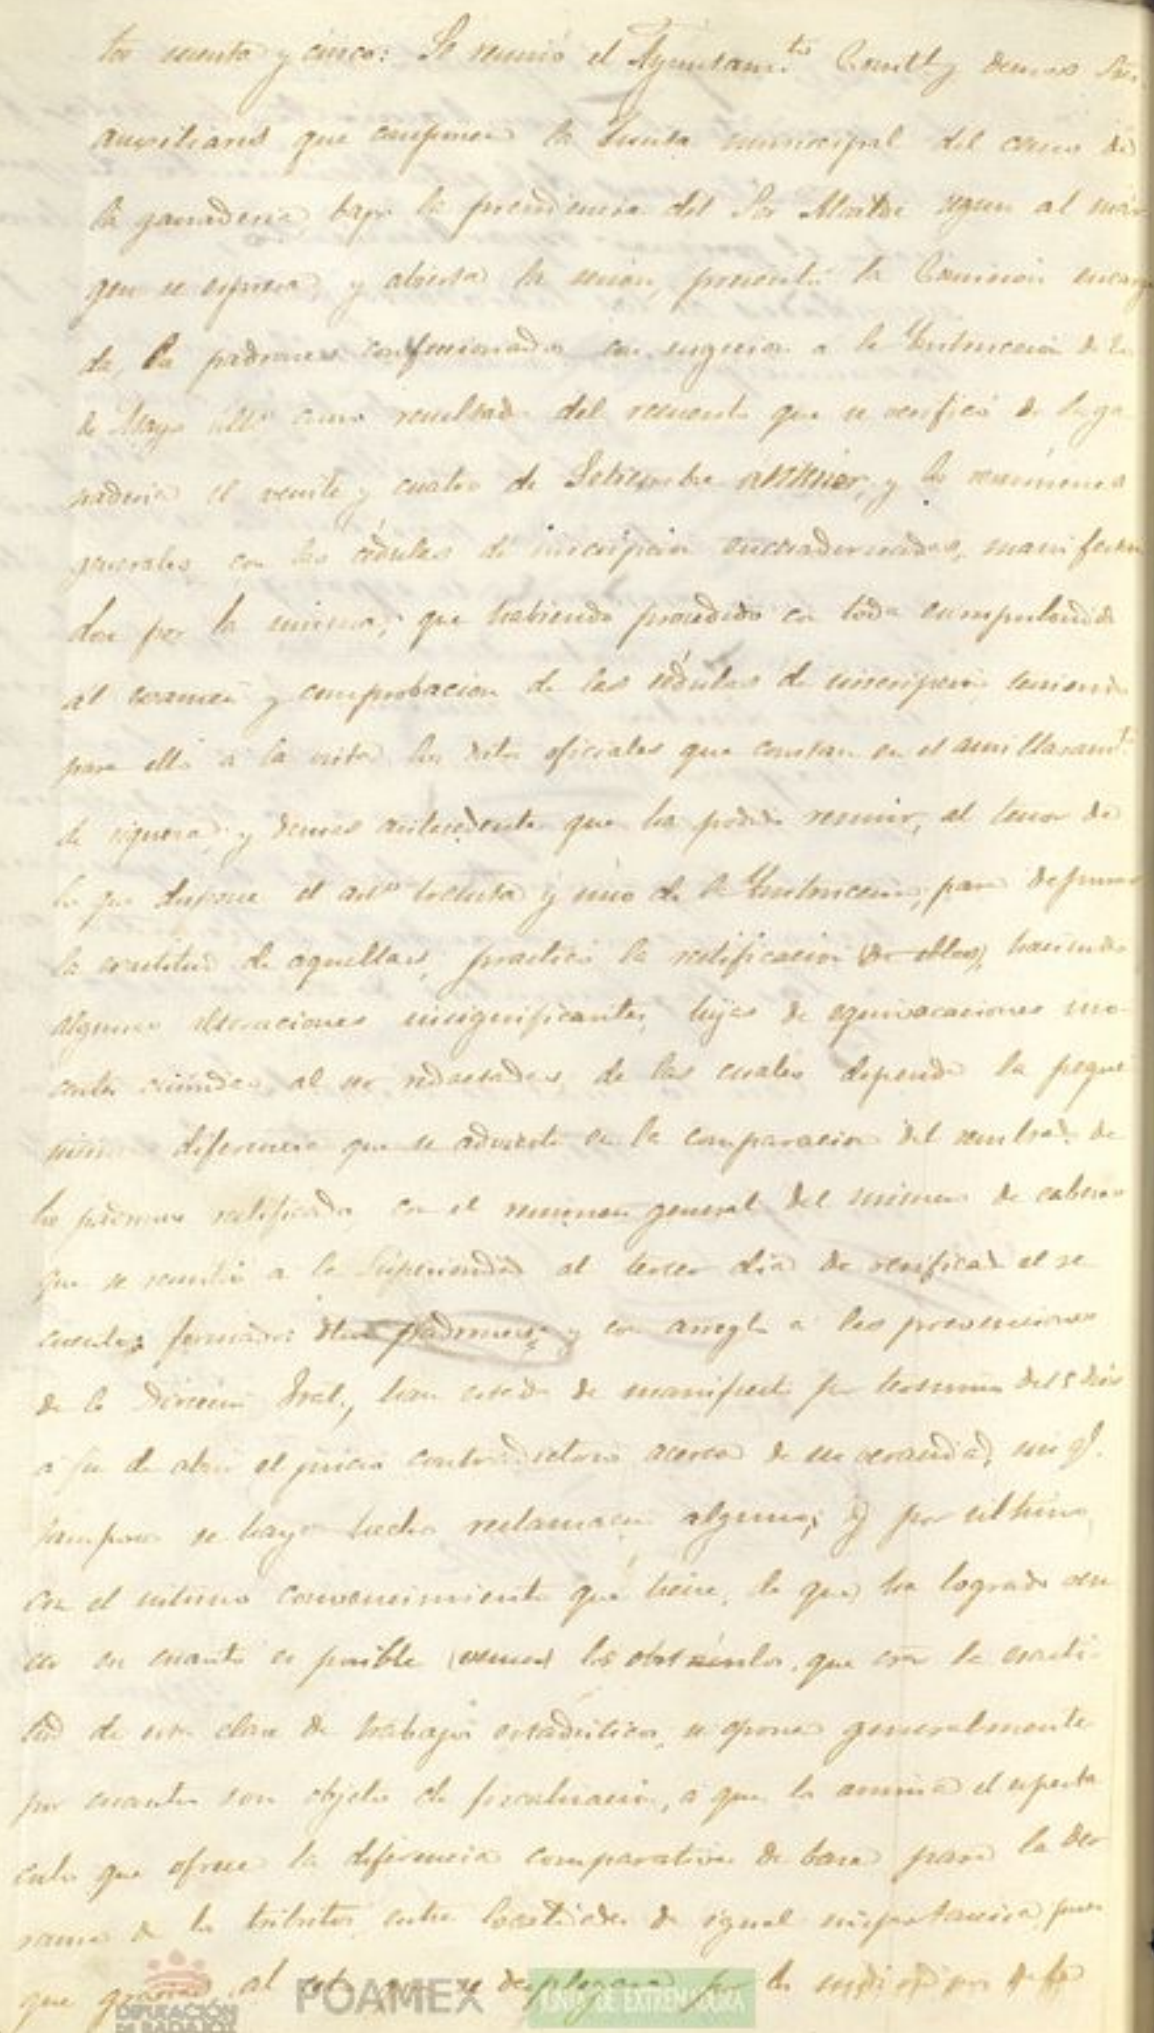 tos sesenta y cinco: Se reunió el Ayuntam.to Constl y demas Sres
auxiliares que componen la Junta municipal del censo de
la ganaderia bajo la presidencia del Sor Alcalde segun al mar
gen se espresa, y abierta la sesion, presentó la Comision encarga
da, los padrones confeccionados con sugecion a la Instruccion de
de Mayo ultº como resultado del recuento que se verificó de la ga
naderia el veinte y cuatro de Setiembre anterior, y los resumenes
generales con las cédulas de inscripcion encuadernadas, manifestan
dose por la misma; que habiendo procedido con toda
al examen y comprobacion de las cédulas de inscripcion teniendo
para ello a la vista los datos oficiales que constan en el amillaramto
de riqueza, y demas antecedentes que ha podido reunir, al tenor de
lo que dispone el artº treinta y uno de la Instruccion, para depurar
la exactitud de aquellas, practicó la rectificacion (de ellas), haciendo
algunas alteraciones insignificantes, hijas de equivocaciones ino
centes al ser redactadas, de las cuales depende la peque
diferencia que se advierte en la comparacion del resultado de
los padrones rectificados con el resumen general del numero de cabezas
que se remitió a la Superioridad al tercer dia de verificado el re
cuento; formados padrones; y con arreglo a las prevenciones
de la Direccion Gral, han estado de manifiesto por termino de 15 dias
a fin de abrir el juicio contradictorio acerca de su veracidad, sin q.
tampoco se haya hecho reclamacion alguna; y por ultimo
con el intimo convencimiento que tiene, de que ha logrado ven
cer en cuanto es posible (vencer) los obstáculos, que con la exacti
tud de esta clase de trabajos estadisticos, se opone generalmente
por cuantos son objeto de fiscalizacion, a que la anima el especta
culo que ofrece la diferencia comparativa de base para la der
rama de los tributos entre localidades de igual importancia, pues
que al se por
DIPUTACIÓN DE BADAJOZ FOAMEX JUNTA DE EXTREMADURA